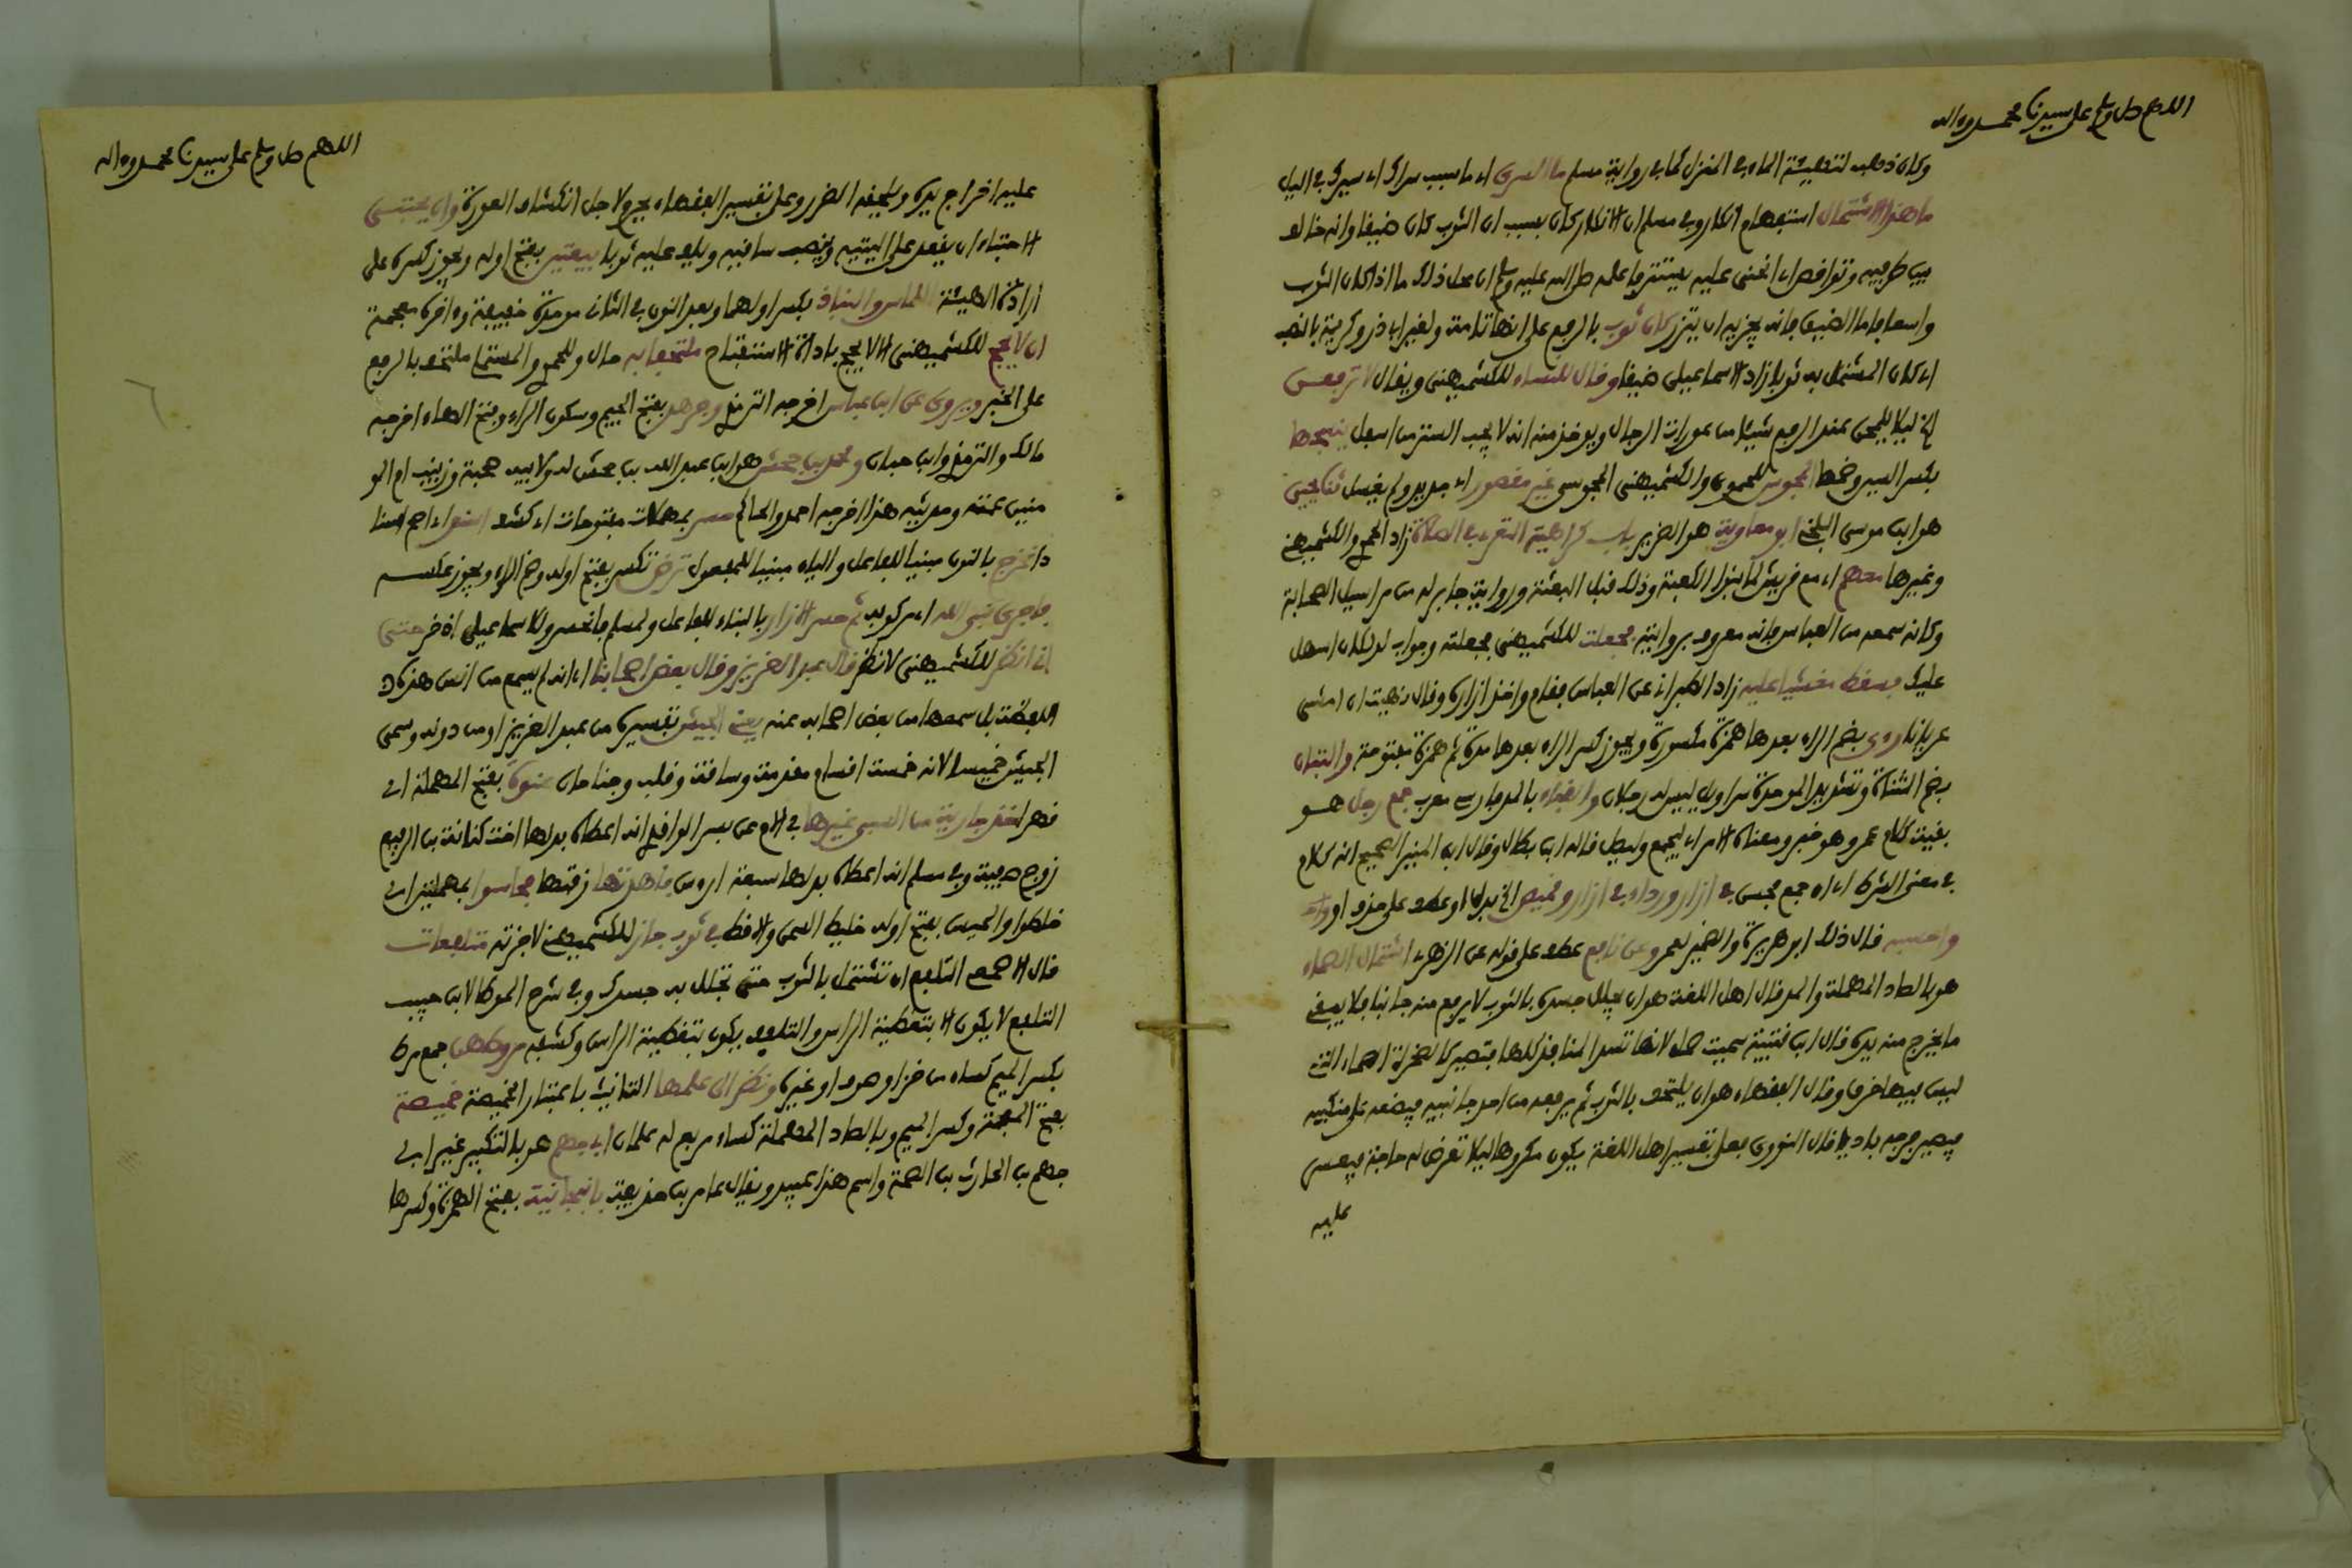 اللهم صل وسلم على سيدنا محمد وءاله
وكان ذهب لتهيئة الماء في المنزل كما في رواية مسلم ما السرى اي ما سبب سراك اي سيرك في اليل
ما هذا الاشتمال استفهام انكار وفي مسلم ان الانكار كان بسبب ان الثوب كان ضيقا وانه خالف
بين طرفيه وتواقص اي انحنى عليه ليستتر فاعلمه صلى الله عليه وسلم ان محل ذلك ما اذا كان الثوب
واسعا فاما الضيق فانه يجزيه ان يتزر كان ثوب بالرفع على انها تامة ولغير ابي ذر وكريمة بالنصب
اي كان المشتمل به ثوبا زاد الاسماعيلي ضيقا وقال للنساء للكشميهني ويقال لا ترفعن
الخ ليلا يلمحن عند الرفع شيئا من عورات الرجال ويوخذ منه انه لا يجب الستر من اسفل ينسجها
بكسر السين وضمها المجوس للحموي والكشميهني المجوسي غير مقصور اي جديد ولم يغسل ثنا يحيى
هو ابن موسى البلخي ابو معاوية هو الضرير باب كراهية التعري في الصلاة زاد الحموي والكشميهني
وغيرها معهم اي مع قريش لما بنوا الكعبة وذلك قبل البعثة ورواية جابر له من مراسيل الصحابة
وكانه سمعه من العباس فانه معروف بروايته فجعلت للكشميهني فجعلته وجواب لو لكان اسهل
عليك فسقط مغشيا عليه زاد الطبراني عن العباس فقام واخذ ازاره وقال نهيت ان امشي
عريانا روي بضم الراء بعدها همزة مكسورة ويجوز كسر الراء بعدها مدة ثم همزة مفتوحة والتبان
بضم المثناة وتشديد الموحدة سراويل ليس له رجلان والقباء بالمد فارسي معرب جمع رجل هو
بقية كلام عمر وهو خبر ومعناه الامر اي ليجمع وليصل قاله ابن بطال وقال ابن المنير الصحيح انه كلام
في معنى الشرط اي ان جمع فحسن في ازار ورداء في ازار وقميص الخ بدل او عطف على حذف او
واحسبه قال ذلك ابو هريرة والضمير لعمر وعن نافع عطف على قوله عن الزهري اشتمال الصماء
هو بالصاد المهملة والمد قال اهل اللغة هو ان يجلل جسده بالثوب لا يرفع منه جانبا فلا يبقى
ما يخرج منه يده قال ابن قتيبة سميت صماء لانها تسد المنافذ كلها فتصير كالصخرة الصماء التي
ليس فيها خرق وقال الفقهاء هو ان يلتحف بالثوب ثم يرفعه من احد جانبيه فيضعه على منكبيه
فيصير فرجه باديا قال النووي فعلى تفسير اهل اللغة يكون مكروها ليلا تعرض له حاجة فيعسر
عليه
اللهم صل وسلم على سيدنا محمد وءاله
عليه اخراج يده ويلحقه الضرر وعلى تفسير الفقهاء يحرم لاجل انكشاف العورة وان يحتبي
الاحتباء ان يقعد على اليتيه وينصب ساقيه ويلف عليه ثوبا بيعتين بفتح اوله ويجوز كسره على
ارادة الهيئة اللماس والنباذ بكسر اولهما وبعد النون في الثاني موحدة خفيفة وءاخره معجمة
ان لا يحج للكشميهني الا لا يحج باداة الاستفتاح ملتحفا به حال وللحموي والمستملي ملتحف بالرفع
على الخبر ويروى عن ابن عباس اخرجه الترمذي وجرهد بفتح الجيم وسكون الراء وفتح الهاء اخرجه
مالك والترمذي وابن حبان ومحمد بن جحش هو ابن عبد الله بن جحش له ولابيه صحبة وزينب ام المو
منين عمته وحديثه هذا اخرجه احمد والحاكم حسر بمهملات مفتوحات اي كشف اسند اي اصح اسنا
دا نخرج بالنون مبنيا للفاعل والياء مبنيا للمفعول ترض تكسر بفتح اوله وضم الراء ويجوز عكسه
فاجرى نبي الله اي مركوبه ثم حسر الازار بالبناء للفاعل ولمسلم فانحسر وللاسماعيلي اذ خر حتى
اني انظر للكشميهني لانظر قال عبد العزيز وقال بعض اصحابنا اي انه لم يسمع من انس هذه
اللفظة بل سمعها من بعض اصحابه عنه يعني الجيش تفسيره من عبد العزيز او من دونه وسمى
الجيش خميسا لانه خمسة اقسام مقدمة وساقة وقلب وجناحان عنوة بفتح المهملة اي
قهرا خذ جارية من السبي غيرها في الام عن سير الواقدي انه اعطاه بدلها اخت كنانة بن الربيع
زوج صفية وفي مسلم انه اعطاه بدلها سبعة ارءوس فاهدتها زفتها فحاسوا بمهملتين اي
خلطوا والحيس بفتح اوله خليط السمن والاقط في ثوب جاز للكشميهني لاجزته متلفعات
قال الاصمعي التلفع ان تشتمل بالثوب حتى تجلل به جسدك وفي شرح الموطا لابن حبيب
التلفع لا يكون الا بتغطية الراس والتلفف يكون بتغطية الراس وكشفه مروطهن جمع مرط
بكسر الميم كساء من خز او صوف او غيره ونظر الى علمها التانيث باعتبار الخميصة خميصة
بفتح المعجمة وكسر الميم وبالصاد المهملة كساء مربع له علمان ابي جهم هو بالتكبير غير ابي
جهم بن الحارث بن الصمة واسم هذا عبيد ويقال عامر بن حذيفة بانبجانية بفتح الهمزة وكسرها